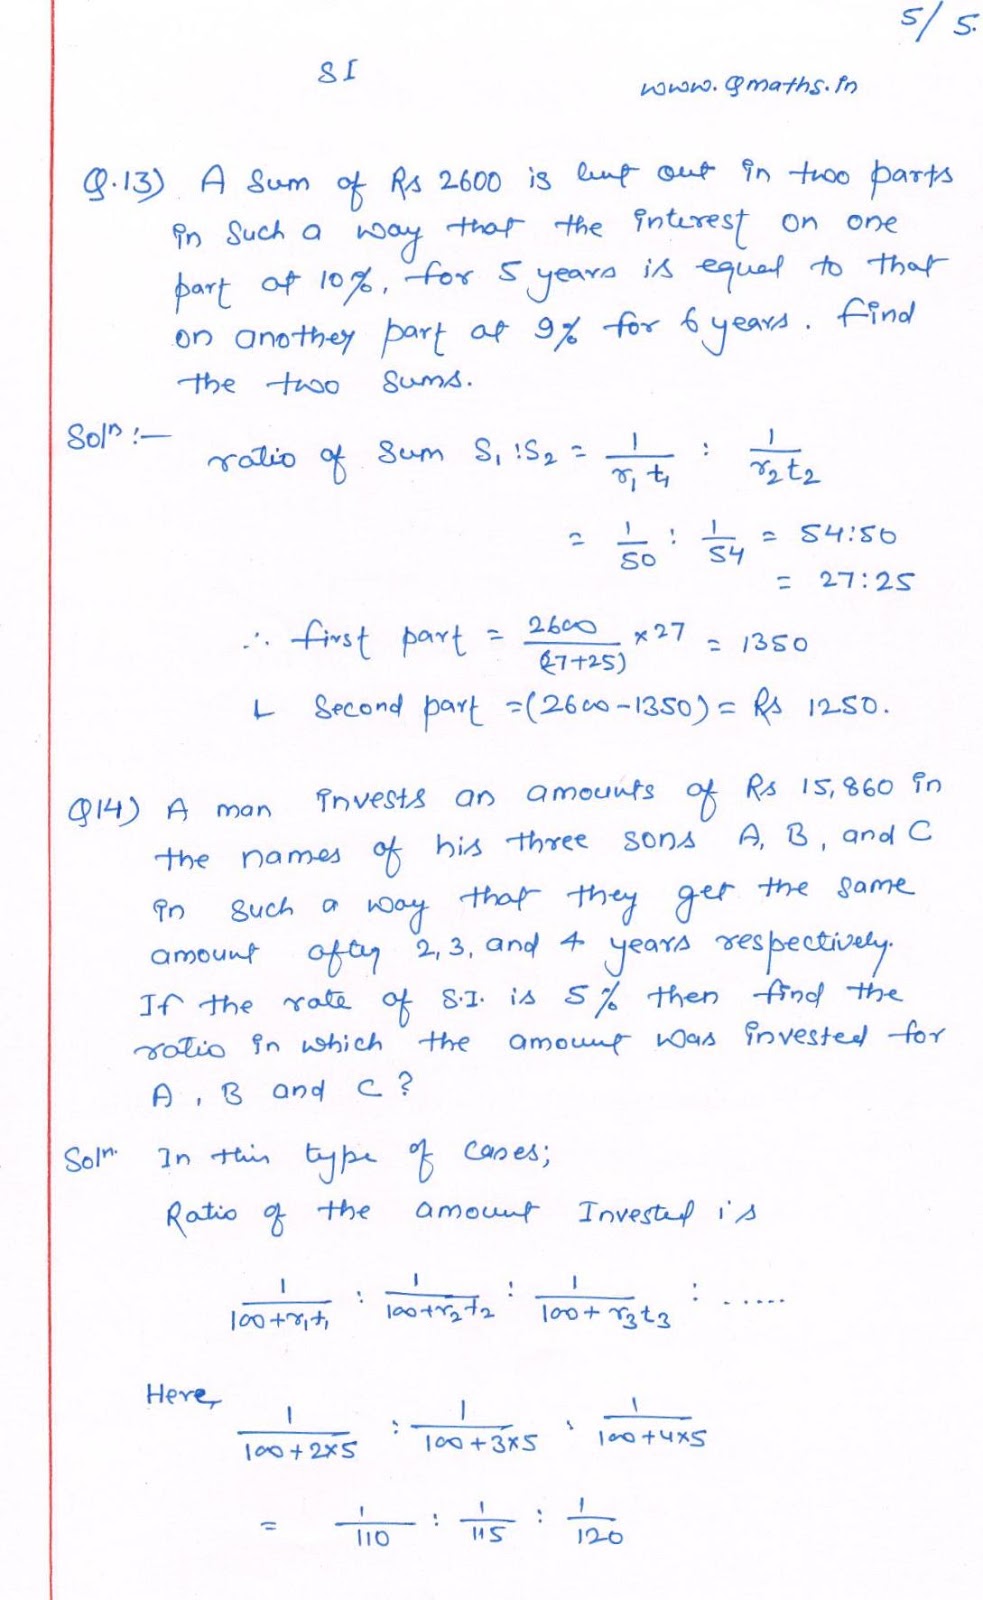 5/5.
SI
www.Qmaths.in
Q.13) A Sum of Rs 2600 is lent out in two parts
in such a way that the interest on one
part at 10%, for 5 years is equal to that
on another part at 9% for 6 years. find
the two sums.
Solⁿ :— ratio of Sum S₁:S₂ = 1/r₁t₁ : 1/r₂t₂
= 1/50 : 1/54 = 54:50
= 27:25
∴ first part = 2600/(27+25) × 27 = 1350
L Second part = (2600-1350) = Rs 1250.
Q14) A man invests an amounts of Rs 15,860 in
the names of his three sons A, B, and C
in such a way that they get the same
amount after 2, 3, and 4 years respectively.
If the rate of S.I. is 5% then find the
ratio in which the amount was invested for
A, B and C?
Solⁿ. In this type of cases;
Ratio of the amount Invested is
1/100+r₁t₁ : 1/100+r₂t₂ : 1/100+r₃t₃ : .....
Here, 1/100+2×5 : 1/100+3×5 : 1/100+4×5
= 1/110 : 1/115 : 1/120